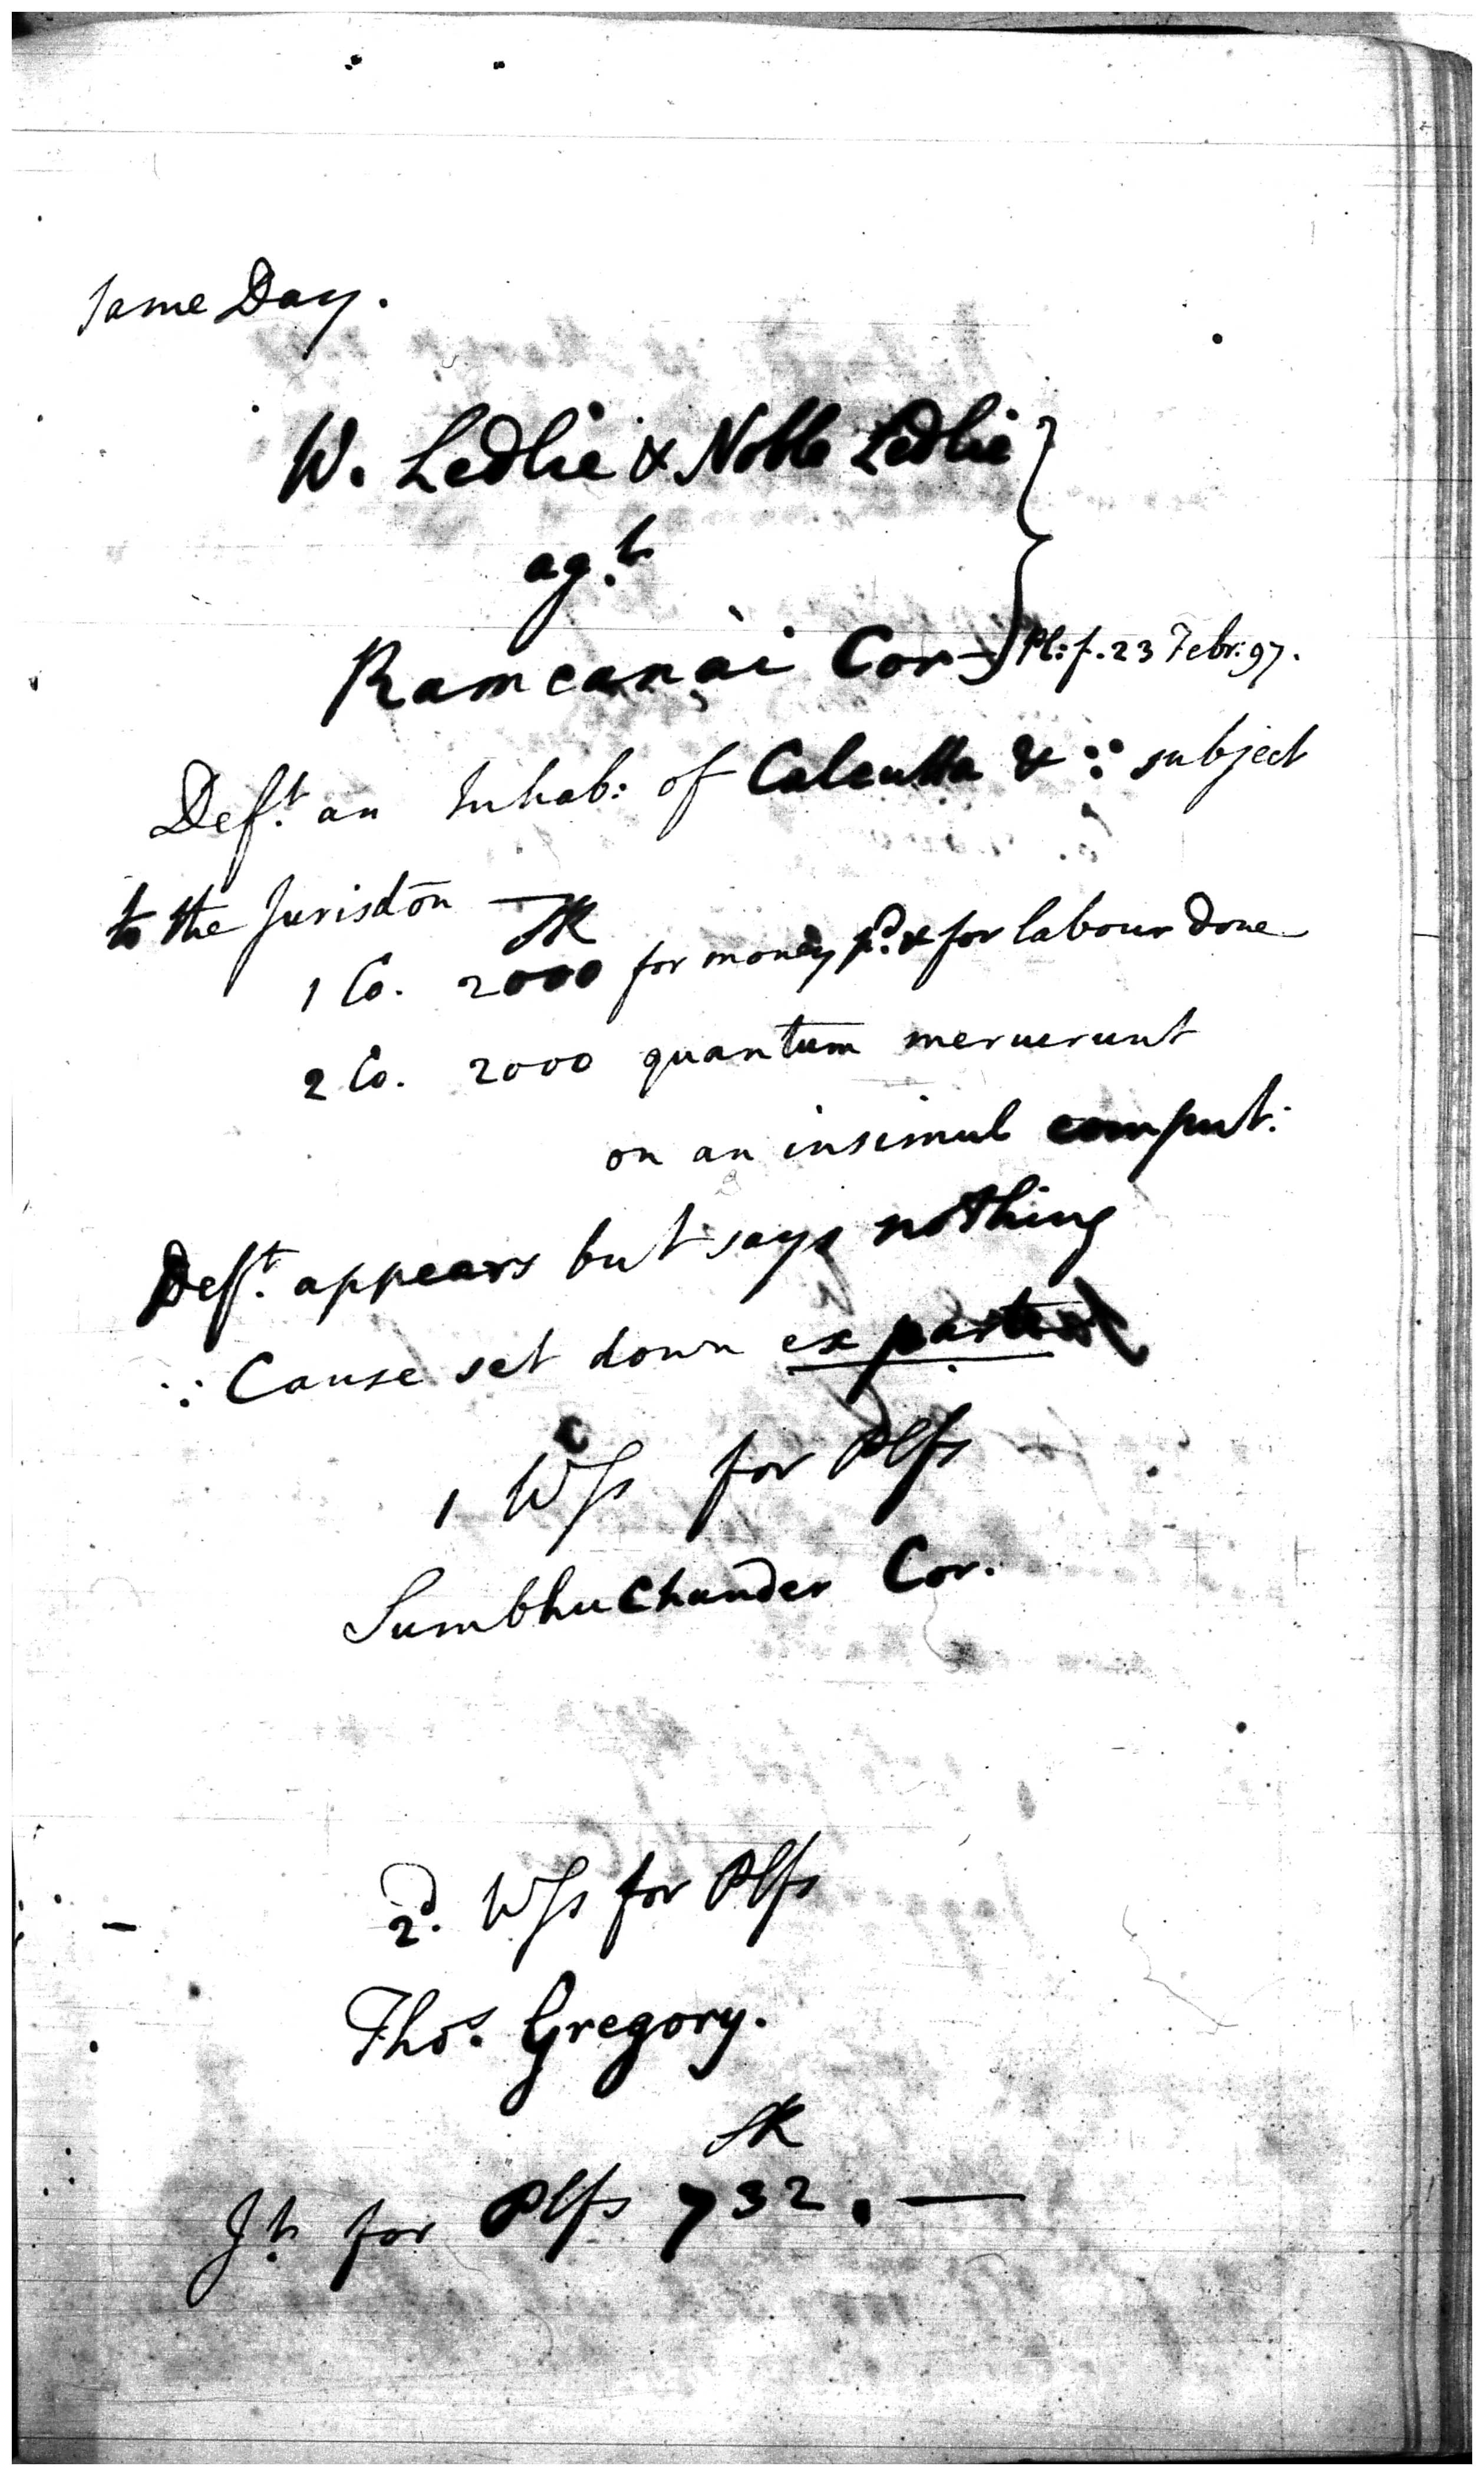 same Day.
W. Ledlie & Noble Ledlie
ag.t
Ramcanai Cor
Pl: f. 23 Febr: 97.
Def.t an Inhab: of Calcutta & ∵ subject
to the Jurisdōn —
SR
1 Co. 2000 for money p.d & for labour done
2 Co. 2000 quantum meruerunt
on an insimul comput:
Def.t appears but says nothing
∴ Cause set down ex parte
1 Wss for Plfs
Sumbhuchunder Cor.
2.d Wss for Plfs
Tho.s Gregory.
SR
J.t for Plfs 732. —